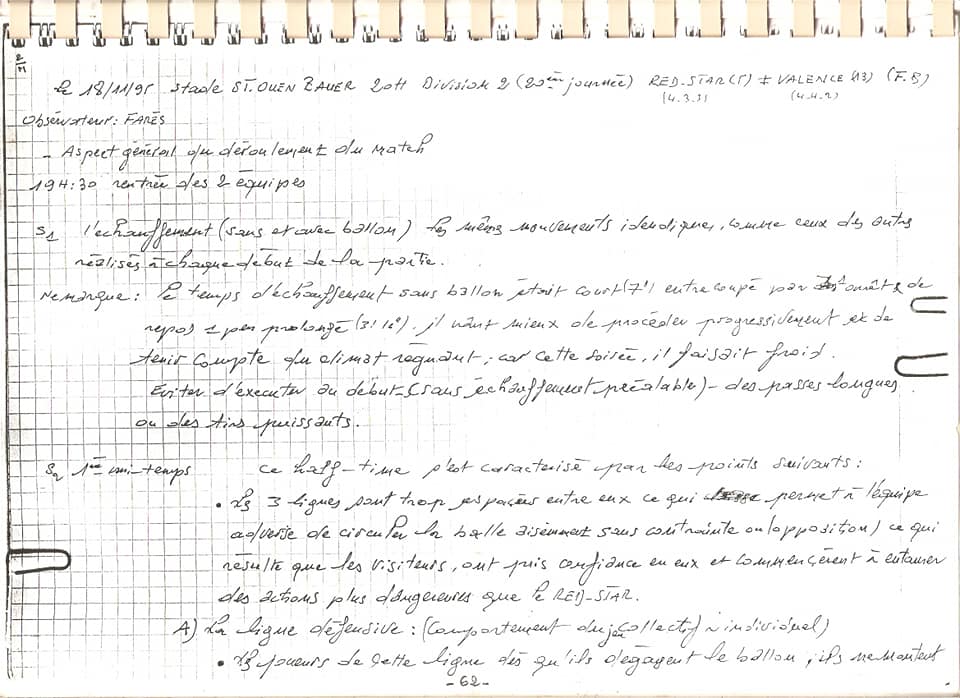 Le 18/11/95 stade ST.OUEN BAUER 20H Division 2 (20ème journée) RED.STAR(5) ≠ VALENCE(13) (F.B)
(4.3.3) (4.4.2)
Observateur: FARÈS
- Aspect général du déroulement du match
19H:30 rentrée des 2 équipes
S1 l'échauffement (sans et avec ballon) les mêmes mouvements identiques, comme ceux des autres
réalisés à chaque début de la partie.
Remarque: le temps d'échauffement sans ballon était court (7') entrecoupé par de
repos 1 peu prolongé. il vaut mieux de procéder progressivement et de
tenir compte du climat régnant, car cette soirée, il faisait froid.
Eviter d'exécuter au début (sans échauffement préalable) - des passes longues
ou des tirs puissants.
S2 1ère mi-temps ce half-time s'est caractérisé par les points suivants:
• Les 3 lignes sont trop espacées entre eux ce qui permet à l'équipe
adverse de circuler la balle aisément sans contrainte ou (opposition) ce qui
résulte que les visiteurs, ont pris confiance en eux et commencèrent à entamer
des actions plus dangereuses que le RED-STAR.
A) La ligne défensive: (Comportement du jeu collectif individuel)
• Les joueurs de cette ligne dès qu'ils dégagent le ballon, ils remontent
-62-